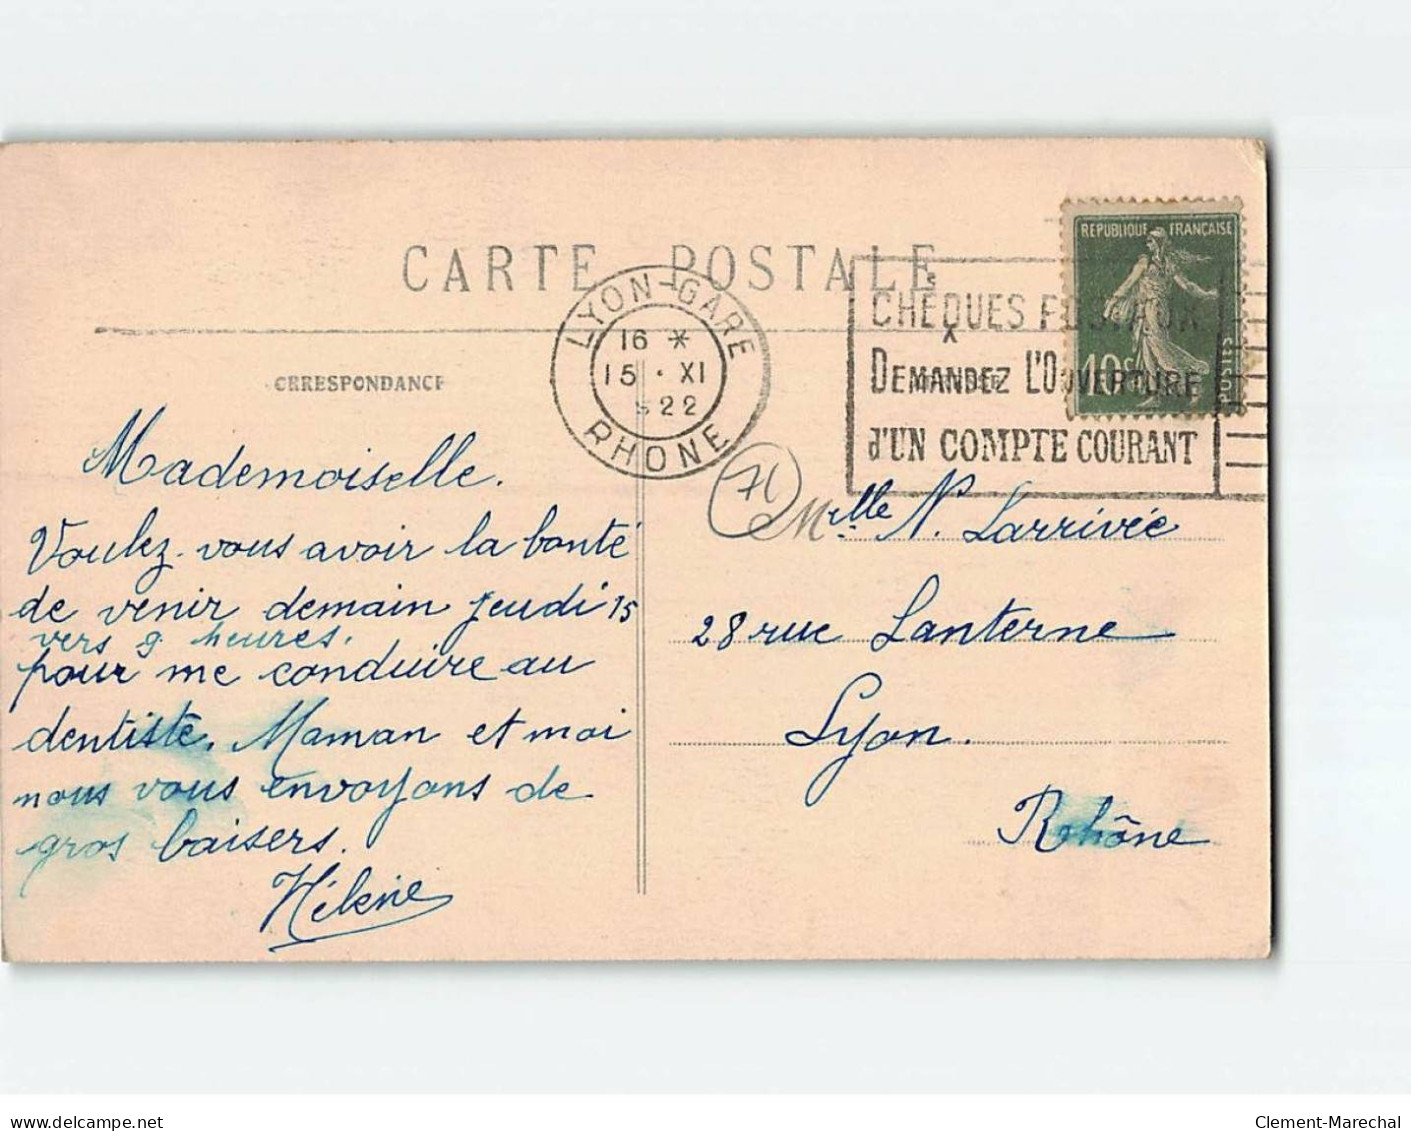 CARTE POSTALE
CRRESPONDANCE
LYON-GARE
16 *
15 · XI
22
RHONE
CHÈQUES POSTAUX
DEMANDEZ L'OUVERTURE
d'UN COMPTE COURANT
REPUBLIQUE FRANÇAISE
10c
POSTES
71
Mademoiselle.
Voulez-vous avoir la bonté
de venir demain jeudi 15
vers 9 heures.
pour me conduire au
dentiste. Maman et moi
nous vous envoyons de
gros baisers.
Hélène
Melle N. Larrivée
28 rue Lanterne
Lyon.
Rhône
delcampe.net
Clement-Marechal